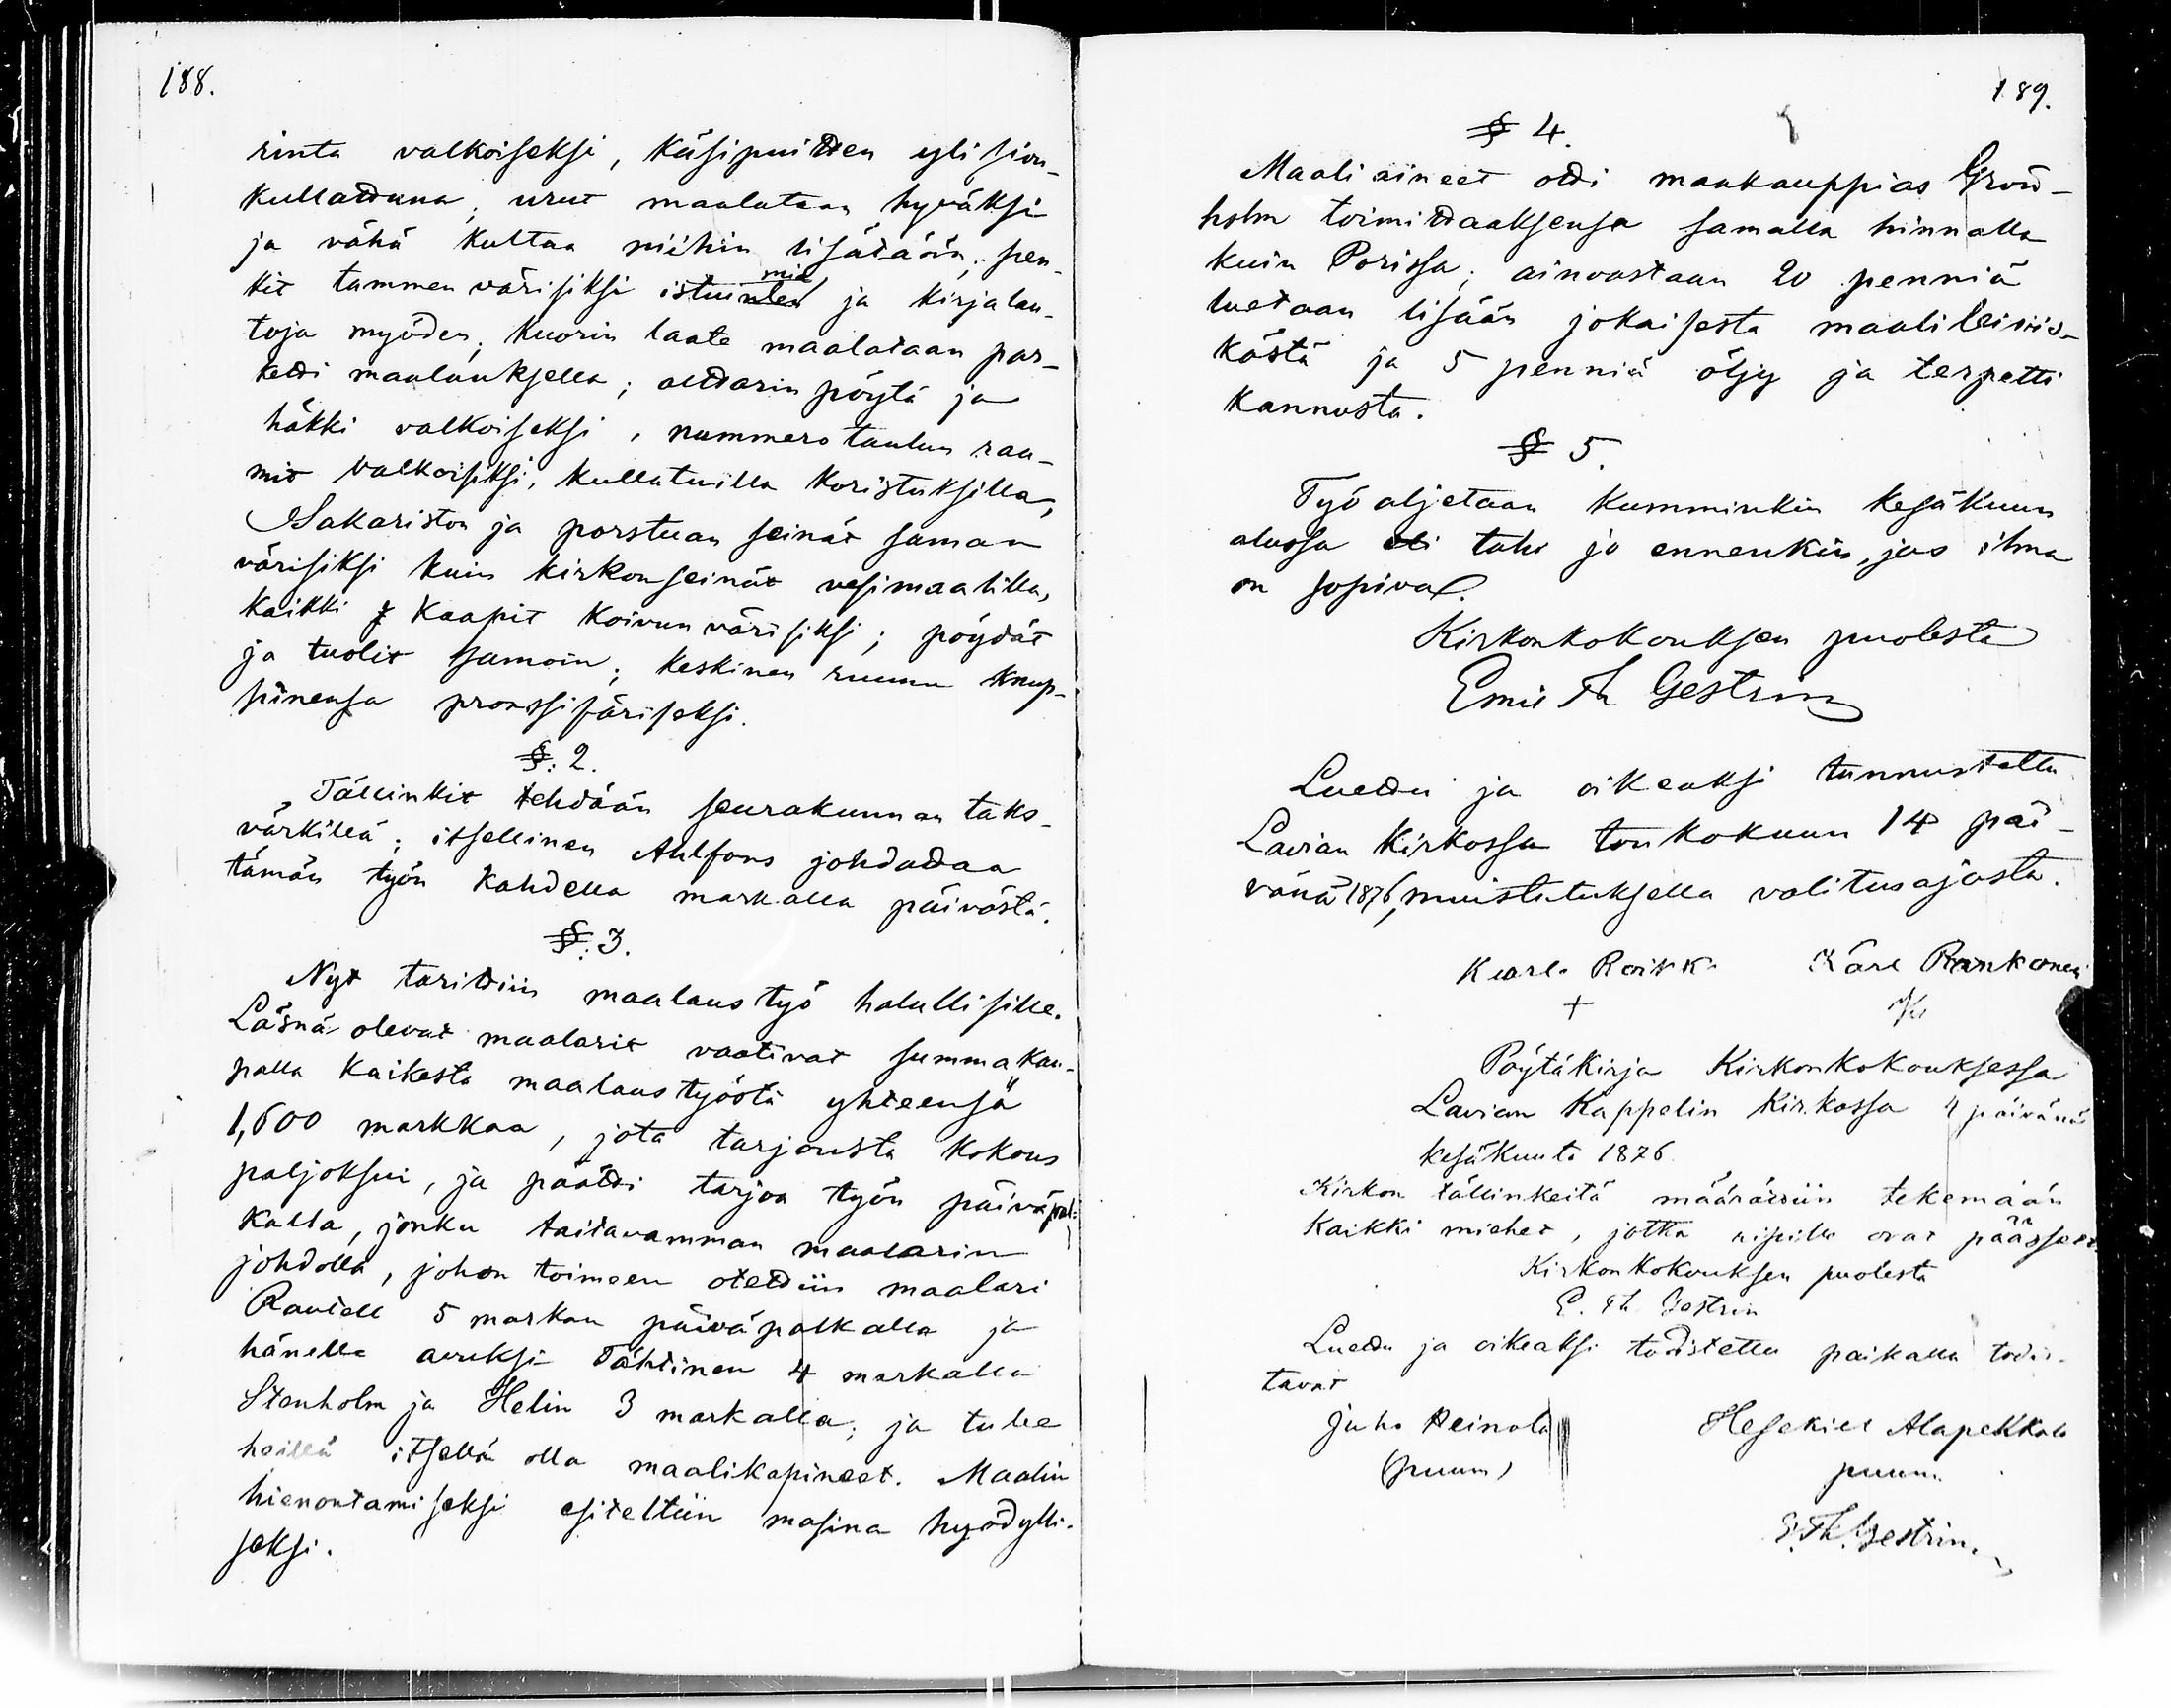 188.
rinta valkoiseksi, käsipuitten yli sivu
kullattuna; urut maalataan hyväksi
ja vähä kultaa niihin lisätään; pen-
kit tammen värisiksi istuimia ja kirjalau-
toja myöden; kuorin laate maalataan par-
ketti maalauksella; alttarin pöytä ja
häkki valkoiseksi, nummero taulun raa-
mit valkoisiksi, kullatuilla koristuksilla,
Sakariston ja porstuan seinät saman
värisiksi kuin kirkon seinät vesimaalilla,
kaikki kaapit koivun värisiksi; pöydät
ja tuolit samoin; keskinen ruunu knup-
pinensa pronssiväriseksi.
§: 2.
Tällinkit tehdään seurakunnan taks-
värkillä; itsellinen Ahlfons johdattaa
tämän työn kahdella markalla päivästä.
§: 3.
Nyt tarittiin maalaus työ halullisille.
Läsnä olevat maalarit vaativat summa kau-
palla kaikesta maalaus työstä yhteensä
1,600 markkaa, jota tarjousta kokous
paljoksui, ja päätti tarjoa työn päiväpal-
kalla, jonku taitavamman maalarin
johdolla, johon toimeen otettiin maalari
5 markan päiväpalkalla ja
hänelle avuksi Tähtinen 4 markalla
Stenholm ja Helin 3 markalla; ja tulee
heillä itsellä olla maalikapineet. Maalin
hienontamiseksi esiteltiin masina hyödylli-
seksi.
189.
§ 4.
Maali aineet otti maakauppias Grön-
holm toimittaaksensa samalla hinnalla
kuin Porissa; ainoastaan 20 penniä
luetaan lisään jokaisesta maali leivis-
köstä ja 5 penniä öljy ja terpetti
kannusta.
§ 5.
Työ aljetaan kumminkin kesäkuun
alussa eli taho jo ennenkin, jos ilma
on sopiva.
Kirkonkokouksen puolesta
Emil Th Gestrin
Luettu ja oikeaksi tunnustettu
Lavian kirkossa toukokuun 14 päi-
vänä 1876, muistutuksella valitusajasta.
Kaarle Roikk. Karl Rankanen
+
Pöytäkirja Kirkonkokouksessa
Lavian Kappelin kirkossa 4 päivänä
kesäkuuta 1876
Kirkon tällinkeitä määrättiin tekemään
kaikki miehet, jotka ripille ovat päässeet.
Kirkonkokouksen puolesta
E. Th. Gestrin
Luettu ja oikeaksi todistettu paikalla todis-
tavat
Juho Heinola Hesekiel Alapekkala
(puum) puum.
E. Th. Gestrin.